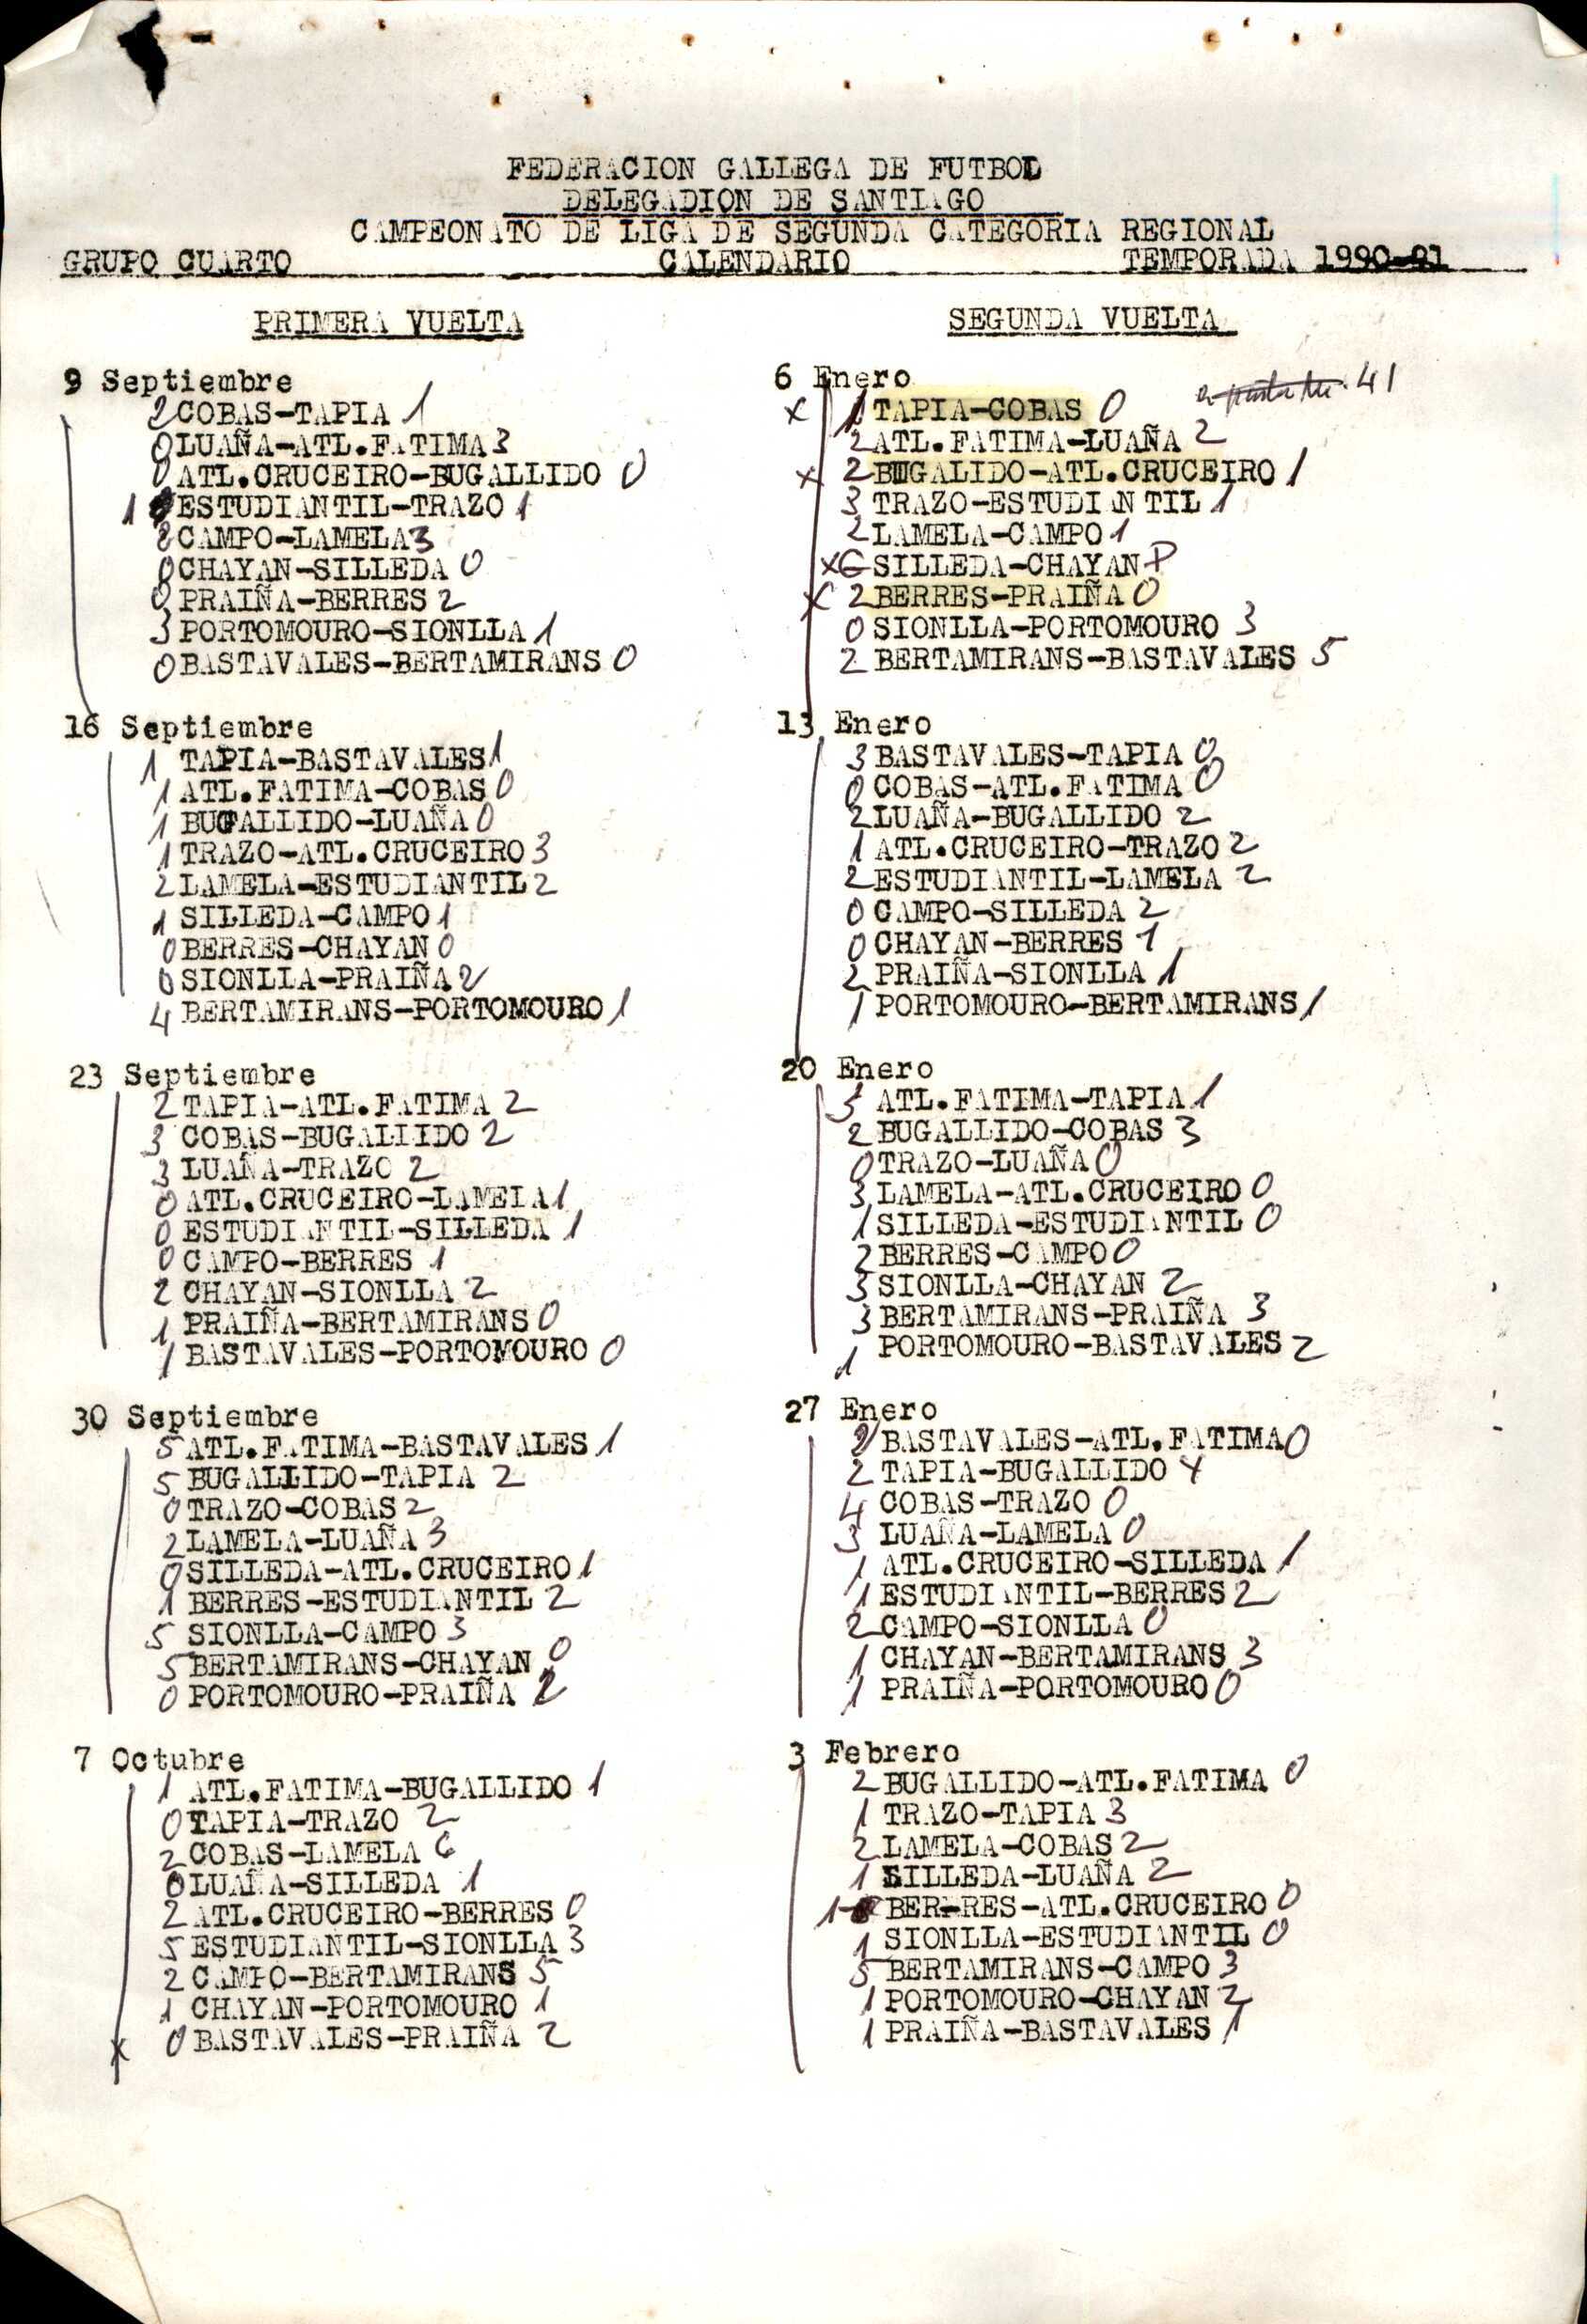 FEDERACION GALLEGA DE FUTBOL
DELEGADION DE SANTIAGO
CAMPEONATO DE LIGA DE SEGUNDA CATEGORIA REGIONAL
GRUPO CUARTO CALENDARIO TEMPORADA 1990-91
PRIMERA VUELTA
9 Septiembre
2 COBAS-TAPIA 1
0 LUAÑA-ATL.FATIMA 3
0 ATL.CRUCEIRO-BUGALLIDO 0
1 ESTUDIANTIL-TRAZO 1
2 CAMPO-LAMELA 3
0 CHAYAN-SILLEDA 0
0 PRAIÑA-BERRES 2
3 PORTOMOURO-SIONLLA 1
0 BASTAVALES-BERTAMIRANS 0
16 Septiembre
1 TAPIA-BASTAVALES 1
1 ATL.FATIMA-COBAS 0
1 BUGALLIDO-LUAÑA 0
1 TRAZO-ATL.CRUCEIRO 3
2 LAMELA-ESTUDIANTIL 2
1 SILLEDA-CAMPO 1
0 BERRES-CHAYAN 0
0 SIONLLA-PRAIÑA 2
4 BERTAMIRANS-PORTOMOURO 1
23 Septiembre
2 TAPIA-ATL.FATIMA 2
3 COBAS-BUGALLIDO 2
3 LUAÑA-TRAZO 2
0 ATL.CRUCEIRO-LAMELA 1
0 ESTUDIANTIL-SILLEDA 1
0 CAMPO-BERRES 1
2 CHAYAN-SIONLLA 2
1 PRAIÑA-BERTAMIRANS 0
1 BASTAVALES-PORTOMOURO 0
30 Septiembre
5 ATL.FATIMA-BASTAVALES 1
5 BUGALLIDO-TAPIA 2
0 TRAZO-COBAS 2
2 LAMELA-LUAÑA 3
0 SILLEDA-ATL.CRUCEIRO 1
1 BERRES-ESTUDIANTIL 2
5 SIONLLA-CAMPO 3
5 BERTAMIRANS-CHAYAN 0
0 PORTOMOURO-PRAIÑA 2
7 Octubre
1 ATL.FATIMA-BUGALLIDO 1
0 TAPIA-TRAZO 2
2 COBAS-LAMELA 6
0 LUAÑA-SILLEDA 1
2 ATL.CRUCEIRO-BERRES 0
5 ESTUDIANTIL-SIONLLA 3
2 CAMPO-BERTAMIRANS 5
1 CHAYAN-PORTOMOURO 1
x 0 BASTAVALES-PRAIÑA 2
SEGUNDA VUELTA
6 Enero 41
x 1 TAPIA-COBAS 0
2 ATL.FATIMA-LUAÑA 2
x 2 BUGALIDO-ATL.CRUCEIRO 1
3 TRAZO-ESTUDIANTIL 1
2 LAMELA-CAMPO 1
x G SILLEDA-CHAYAN P
x 2 BERRES-PRAIÑA 0
0 SIONLLA-PORTOMOURO 3
2 BERTAMIRANS-BASTAVALES 5
13 Enero
3 BASTAVALES-TAPIA 0
0 COBAS-ATL.FATIMA 0
2 LUAÑA-BUGALLIDO 2
1 ATL.CRUCEIRO-TRAZO 2
2 ESTUDIANTIL-LAMELA 2
0 CAMPO-SILLEDA 2
0 CHAYAN-BERRES 1
2 PRAIÑA-SIONLLA 1
1 PORTOMOURO-BERTAMIRANS 1
20 Enero
3 ATL.FATIMA-TAPIA 1
2 BUGALLIDO-COBAS 3
0 TRAZO-LUAÑA 0
3 LAMELA-ATL.CRUCEIRO 0
1 SILLEDA-ESTUDIANTIL 0
2 BERRES-CAMPO 0
3 SIONLLA-CHAYAN 2
3 BERTAMIRANS-PRAIÑA 3
1 PORTOMOURO-BASTAVALES 2
27 Enero
2 BASTAVALES-ATL.FATIMA 0
2 TAPIA-BUGALLIDO 4
4 COBAS-TRAZO 0
3 LUAÑA-LAMELA 0
1 ATL.CRUCEIRO-SILLEDA 1
1 ESTUDIANTIL-BERRES 2
2 CAMPO-SIONLLA 0
1 CHAYAN-BERTAMIRANS 3
1 PRAIÑA-PORTOMOURO 0
3 Febrero
2 BUGALLIDO-ATL.FATIMA 0
1 TRAZO-TAPIA 3
2 LAMELA-COBAS 2
1 SILLEDA-LUAÑA 2
1 BERRES-ATL.CRUCEIRO 0
1 SIONLLA-ESTUDIANTIL 0
5 BERTAMIRANS-CAMPO 3
1 PORTOMOURO-CHAYAN 2
1 PRAIÑA-BASTAVALES 1